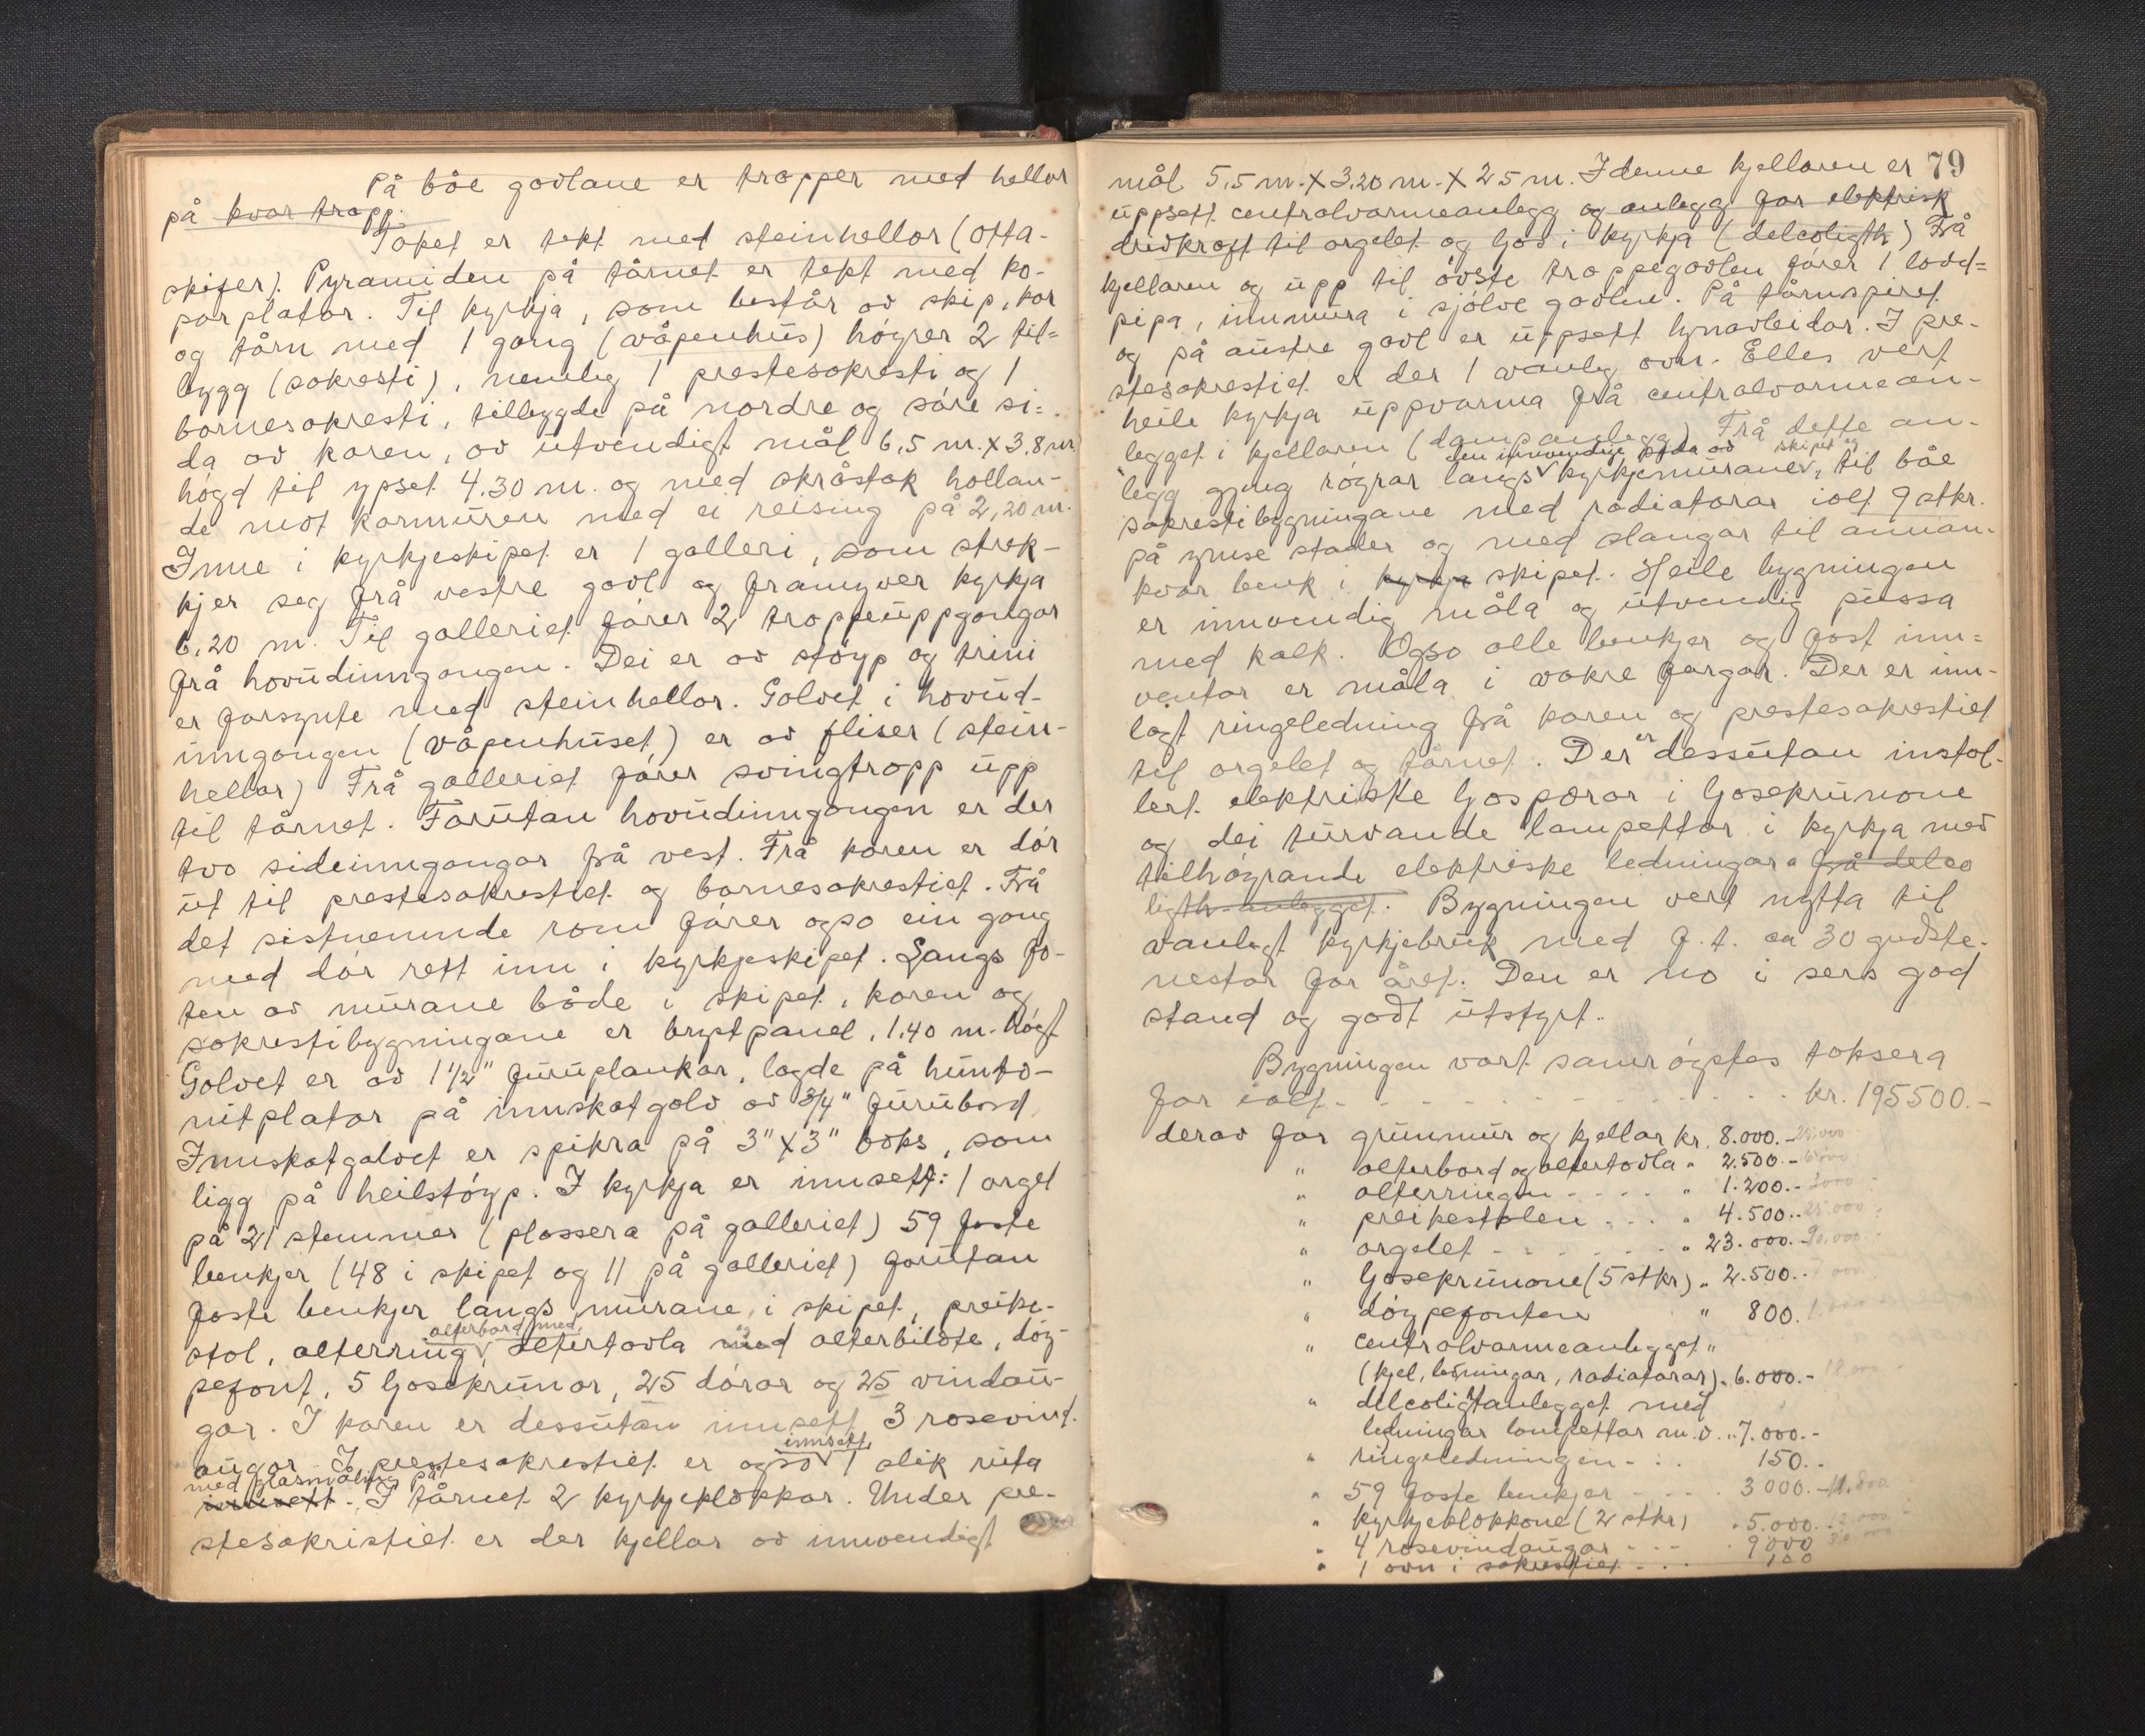 På båe gavlane er trapper med hellar
på kvar trapp.
Taket er tekt med steinhellar (Otta-
skifer). Pyramiden på tårnet er tekt med ko-
parplatar. Til kyrkja, som består av skip, kor
og tårn med 1 gang (våpenhus) høyrer 2 til=
bygg (sakresti), nemleg 1 prestesakresti og 1
barnesakresti, tilbygde på nordre og søre si=
da av koren, av utvendigt mål 6,5 m. x 3,8 m
høgd til ypset 4.30 m. og med skråtak hallan-
de mot kormuren med ei reising på 2,20 m.
Inne i kyrkjeskipet er 1 galleri, som strek-
kjer seg frå vestre gavl og framyver kyrkja
6,20 m. Til galleriet fører 2 trappeuppgangar
frå hovudinngangen. Dei er av støyp og trini
er forsynte med steinhellar. Golvet i hovud-
inngangen (våpenhuset) er av fliser (stein-
hellar) Frå galleriet fører svingtrapp upp
til tårnet. Forutan hovudinngangen er der
tvo sideinngangar på vest. Frå koren er dør
ut til prestesakrestiet og barnesakrestiet. Frå
det sistnemnde rom fører ogso ein gang
med dør rett inn i kyrkjeskipet. Langs fo-
ten av murane både i skipet, koren og
sakrestibygningane er brystpanel, 1.40 m. høgt
Golvet er av 1 1/2" furuplankar, lagde på hunto-
nitplatar på innskotgolv av 3/4" furubord.
Innskotgolvet er spikra på 3" x 3" boks, som
ligg på heilstøyp. I kyrkja er innsett: 1 orgel
på 21 stemmer (plassera på galleriet) 59 faste
benkjer (48 i skipet og 11 på galleriet) forutan
faste benkjer langs murane i skipet, preike-
alterbord med
stol, alterring, altertavla og med alterbilete, døy-
pefont, 5 ljosekrunor, 25 dører og 25 vindau-
gar. I koren er dessutan innsett 3 rosevind-
innsett
augar. I prestesakrestiet er ogso 1 slik ruta
med glasmåling på
innsett. I tårnet 2 kyrkjeklokkar. Under pre-
stesakristiet er der kjellar av innvendigt
79
mål 5,5 m. x 3,20 m. x 2,5 m. I denne kjellaren er
uppsett centralvarmeanlegg og anlegg for elektrisk
drivkraft til orgelet og ljos i kyrkja (delcoligth) Frå
kjellaren og upp til øvste trappegavlen fører 1 lodd=
pipa, innmura i sjølve gavlen. På tårnspiret
og på austre gavl er uppsett lynavleidar. I pre-
stesakrestiet er der 1 vanleg ovn. Elles vert
heile kyrkja uppvarma frå centralvarmean-
legget i kjellaren (dampanlegg) Frå dette an-
den innvendige sida av skipet og
legg gjeng røyrar langs kyrkjemurane, til båe
sakrestibygningane med radiatorar ialt 9 stkr.
på ymse stader og med slangar til annan-
kvar benk i kyrkja skipet. Heile bygningen
er innvendig måla og utvendig pussa
med kalk. Ogso alle benkjer og fast inn=
ventar er måla i vakre fargar. Der er inn-
lagt ringeledning frå koren og prestesakrestiet
til orgelet og tårnet. Der er dessutan instal-
lert elektriske ljospærar i ljosekrunone
og dei turvande lampettar i kyrkja med
tilhøyrande elektriske ledningar frå delco
ligth-anlegget. Bygningen vert nytta til
vanlegt kyrkjebruk med f.t. ca 30 gudste-
nestar for året. Den er no i sers god
stand og godt utstyrt.
Bygningen vart samrøystes taksera
for ialt - - - kr. 195500.-
derav for grunnmur og kjellar kr. 8.000.-
" alterbord og altertavla " 2.500.-
" alterringen - - - - " 1.200.-
" preikestolen - - - " 4.500.-
" orgelet - - - - - " 23.000.-
" ljosekrunone (5 stkr) " 2.500.-
" døypefonten " 800.
" centralvarmeanlegget "
(kjel, ledningar, radiatorar) " 6.000.-
" delcoligtanlegget med
ledningar lampettar m.v. " 7.000.-
" ringeledningen - - 150.-
" 59 faste benkjer - - - 3000.-
" kyrkjeklokkone (2 stkr) " 5.000.
" 4 rosevindaugar - - - " 9000
" 1 ovn i sakrestiet - - - 100